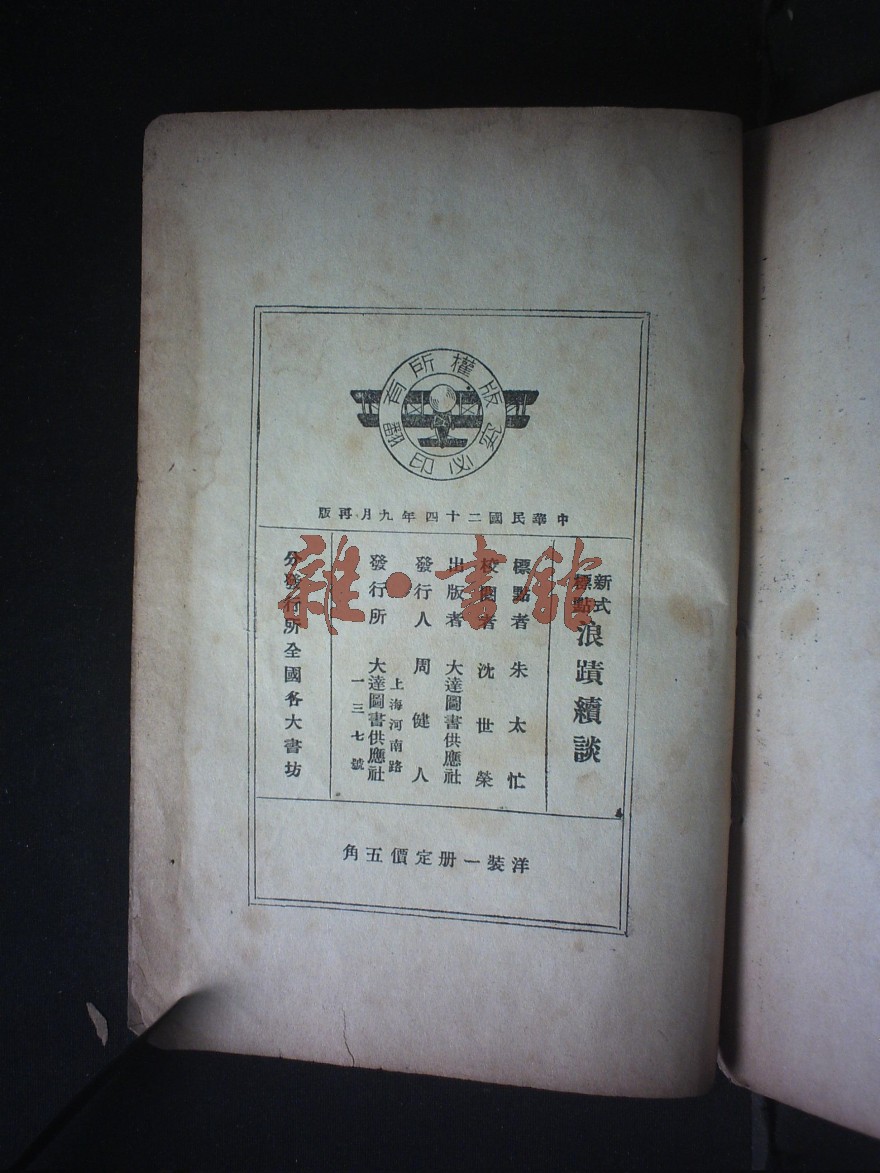 版權所有
翻印必究
中華民國二十四年九月再版
新式標點
浪蹟續談
標點者 朱太忙
校閱者 沈世榮
出版者 大達圖書供應社
發行人 周健人
上海河南路
發行所 大達圖書供應社
一三七號
分發行所全國各大書坊
洋裝一册定價五角
雜·書館